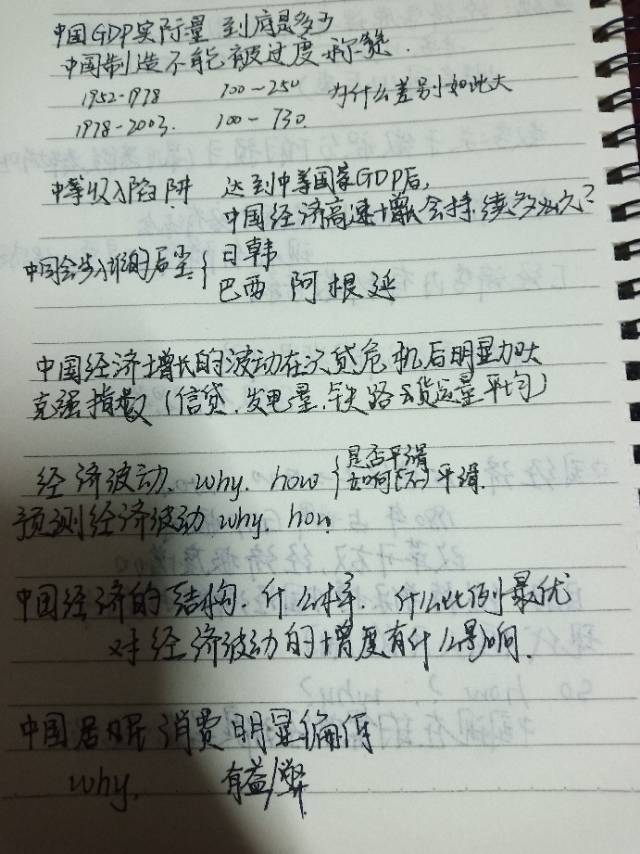 中国GDP实际量 到底是多少
中国制造不能被过度称赞.
1952-1978 100—250 为什么差别如此大
1978-2003. 100—730.
中等收入陷阱 达到中等国家GDP后,
中国经济高速增长会持续多久?
中国会步入谁的后尘 { 日韩
巴西 阿根延
中国经济增长的波动在次贷危机后明显加大
克强指数 (信贷.发电量.铁路货运量平均)
经济波动. why. how { 是否平滑
如何(不)平滑.
预测经济波动 why. how
中国经济的结构.什么样.什么比例最优
对经济波动的增度有什么影响.
中国居民消费明显偏低
why. 有益/弊